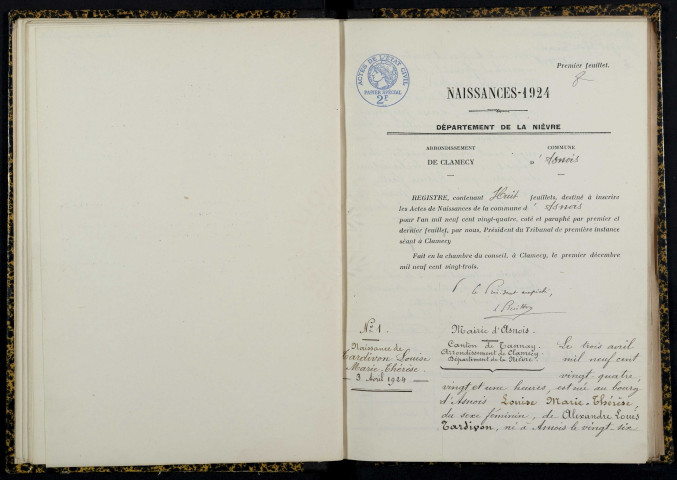 Premier feuillet.
ACTES DE L'ÉTAT CIVIL
PAPIER SPÉCIAL
2F
NAISSANCES-1924
DÉPARTEMENT DE LA NIÈVRE
ARRONDISSEMENT COMMUNE
DE CLAMECY D'Asnois
REGISTRE, contenant Huit feuillets, destiné à inscrire
les Actes de Naissances de la commune d'Asnois
pour l'an mil neuf cent vingt-quatre, coté et paraphé par premier et
dernier feuillet, par nous, Président du Tribunal de première instance
séant à Clamecy
Fait en la chambre du conseil, à Clamecy, le premier décembre
mil neuf cent vingt-trois.
Le Président
No 1
Naissance de
Tardivon Louise
Marie Thérèse.
3 Avril 1924
Mairie d'Asnois.
Canton de Tannay.
Arrondissement de Clamecy.
Département de la Nièvre.
Le trois avril
mil neuf cent
vingt-quatre,
vingt et une heures, est née au bourg
d'Asnois Louise Marie-Thérèse
du sexe féminin, de Alexandre Louis
Tardivon, né à Asnois le vingt-six